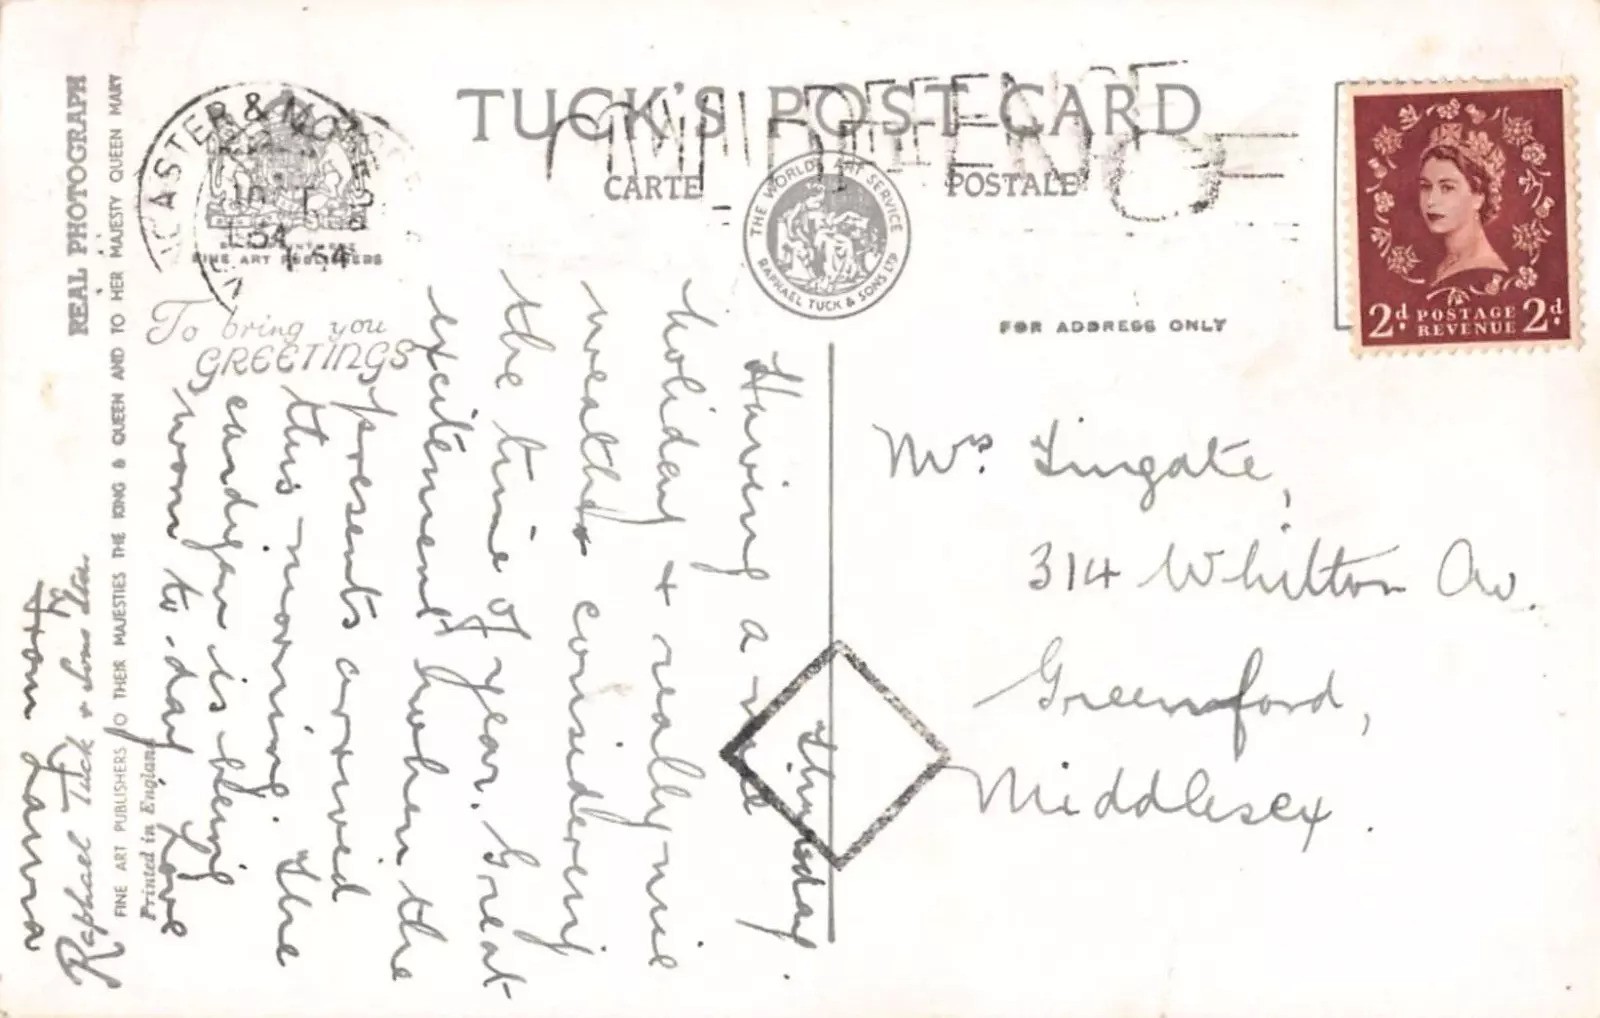 TUCK'S POST CARD
CARTE POSTALE
THE WORLD'S ART SERVICE
RAPHAEL TUCK & SONS LTD
FOR ADDRESS ONLY
2d. POSTAGE REVENUE 2d.
CASTER & MO
OCT
54
FINE ART PUBLISHERS
To bring you
GREETINGS
REAL PHOTOGRAPH
FINE ART PUBLISHERS TO THEIR MAJESTIES THE KING & QUEEN AND TO HER MAJESTY QUEEN MARY
Raphael Tuck & Sons Ltd.
Printed in England
Thursday.
Having a nice
holiday & really nice
weather considering
the time of year. Great
excitement when the
presents arrived
this morning. The
cardigan is being
worn to-day. Love
from Laura
Mrs. Lingate,
314 Whitton Av.
Greenford,
Middlesex.